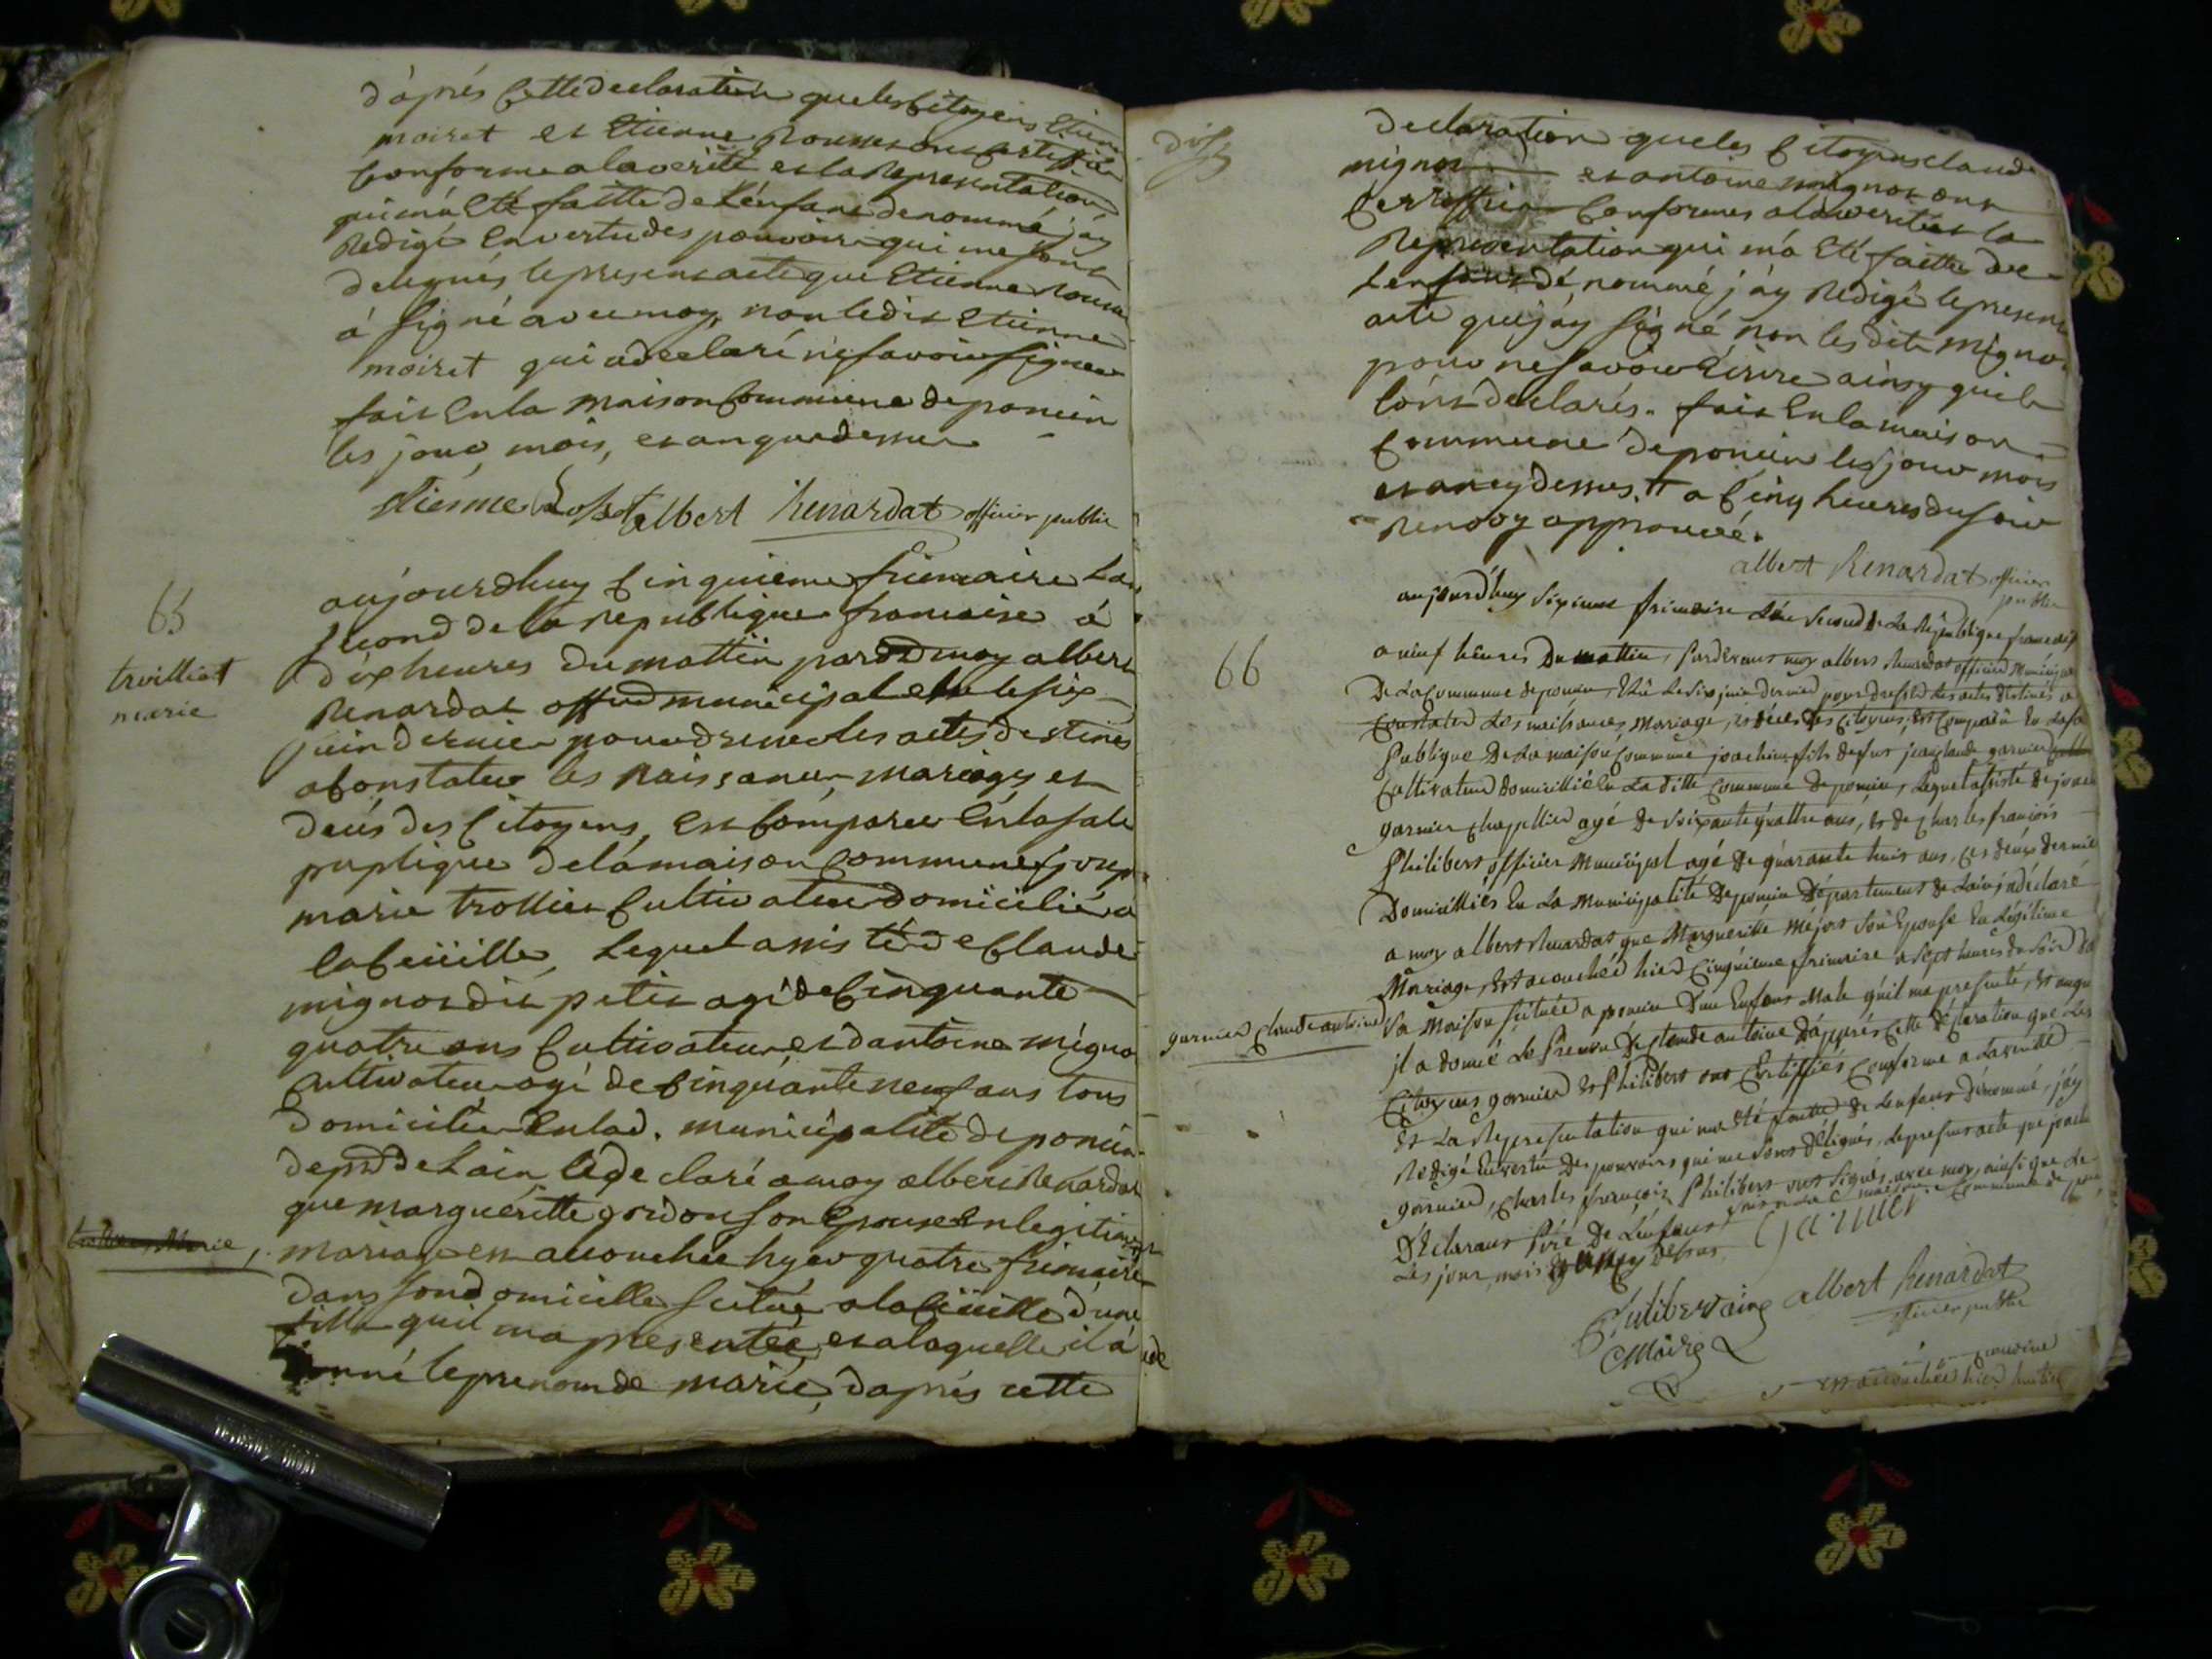 d'après cette declaration que les citoyens Etienne
moiret et Etienne ont certifié
conforme a la verité et la Representation
qui m'a eté faitte de l'enfant denommé j'ay
Redigé en vertu des pouvoirs qui me sont
delegués le present acte que Etienne
á signé avec moy, non ledit Etienne
moiret qui a declaré ne savoir signer
fait en la maison Commune de poncin
les jour, mois, et an que dessus
Etienne albert Renardat officier public
65
troilliet
marie
aujourdhuy Cinquieme frimaire La
second de la republique francaise á
dix heures du mattin pard moy albert
Renardat municipal elu le six
juin dernier pour dresser les actes destinés
a Constater les Naissances mariages et
decés des Citoyens, est Comparu en la sale
puplique de la maison Commune josep
marie trollier Cultivateur domicilié a
la Ceüille, Lequel assisté de Claude
mignot dit petit agé de Cinquante
quatre ans Cultivateur et d'antoine mignot
Cultivateur agé de Cinquante neuf ans tous
domiciliés en lad. municipalité de poncin
depart de Lain a declaré a moy albert Renardat
que marguéritte gordon son Epouse en legitime
mariage est accouchée hyer quatre frimaire
dans son domicille scitué a la Ceüille d'une
fille qu'il m'a presentée et a laquelle il á
donné le prenom de marie, d'aprés cette
declaration que les Citoyens claude
mignot et antoine mignot ont
Certiffié Conformes a la verité et la
Representation qui m'a eté faitte de
L'enfant dénommé j'ay Redigé le present
acte que j'ay signé non les dits mignot
pour ne savoir Ecrire ainsy qu'ils
l'ont declarés. fait en la maison
Commune de poncin les jour mois
et an cy dessus. a Cinq heures du soir
Renvoy approuvé.
albert Renardat officier
public
66
aujourd'huy sixieme frimaire L'an second de La République francaise
a neuf heures Du mattin, Pardevant moy albert Renardat officier Municipal
De La Commune de poncin, Elû Le six juin dernier pour dresser Les actes destinés a
Constater Les naissances, Mariage, et décès des Citoyens, Est Comparû En La sale
Publique De La maison Commune joachim fils de feu jean claude garnier
Cultivateur Domicillié En La ditte Commune De poncin, Lequel assisté de joachim
garnier Chapellier agé De soixante quattre ans, et de Charles françois
Philibert officier Municipal agé De quarante huit ans, Les deux derniers
Domicilliés En La Municipalité De poncin Département de Lain, a déclaré
a moy albert Renardat que Marguerite Méjat son Epouse En Légitime
Mariage, Est accouchée hier Cinquième frimaire a sept heures du soir dans
garnier Claude antoine
sa Maison scituée a poncin D'un Enfant Male qu'il m'a presenté, Et auquel
il a donné Le Prenom De Claude antoine D'apprés Cette Déclaration que Les
Citoyens garnier et Philibert ont Certiffiés Conforme a La verité
Et La Representation qui m'a eté faitte de L'enfant dénommé, j'ay
Redigé En vertu Des pouvoirs qui me sont délégués, Le present acte que joachim
garnier, Charles françois Philibert ont signés avec moy, ainsi que Le
Déclarant Pére De L'enfant fait en La maison Commune de poncin
Les jour, mois et an cy dessus Garnier
Philibert
Maire
albert Renardat
officier public
est accouchée hier